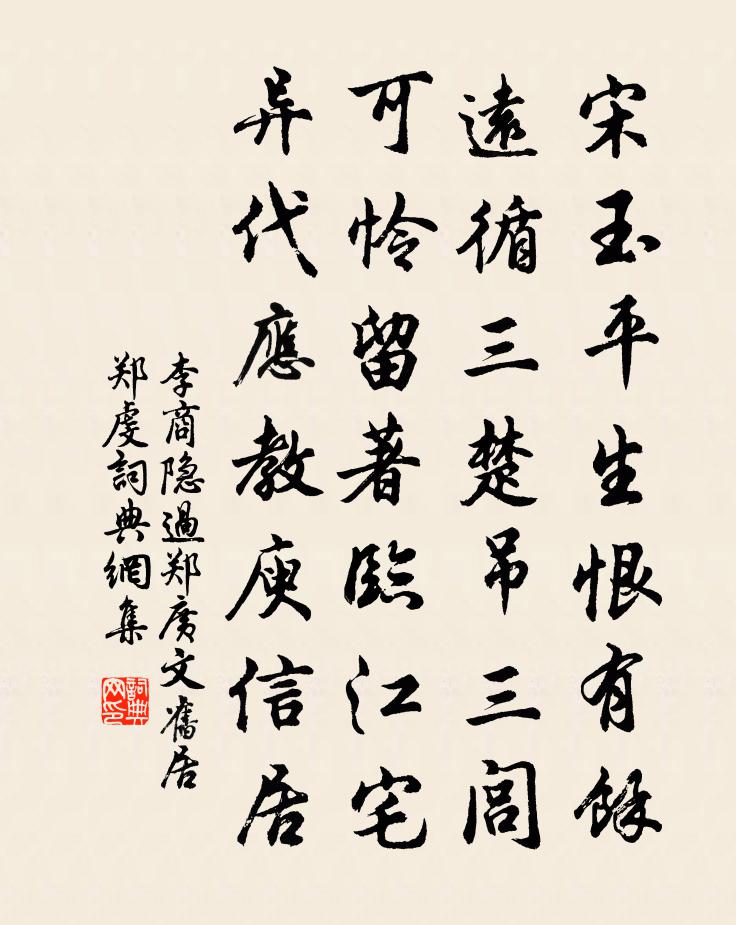 宋玉平生恨有餘
遠循三楚吊三閭
可怜留著臨江宅
异代應教庾信居
李商隐過郑廣文舊居
郑虔詞典網集
詞典网印